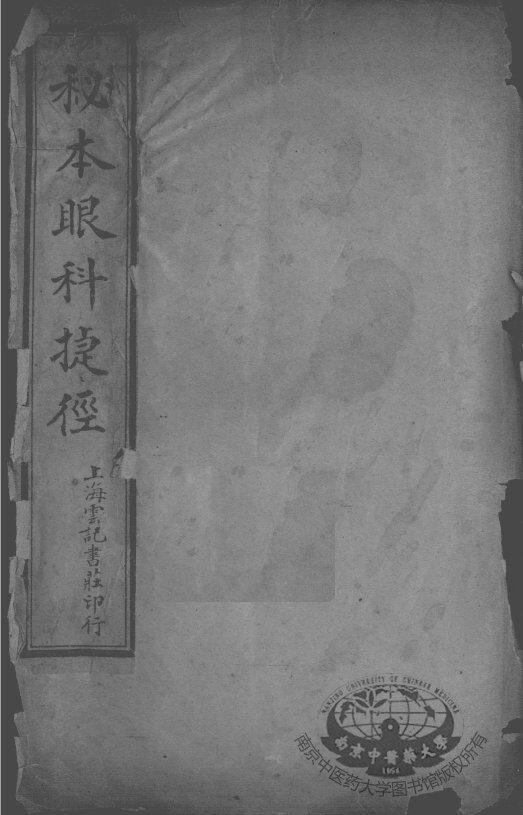 秘本眼科捷徑
上海雲記書莊印行
NANJING UNIVERSITY OF CHINESE MEDICINE
南京中醫藥大學
1954
南京中医药大学图书馆版权所有